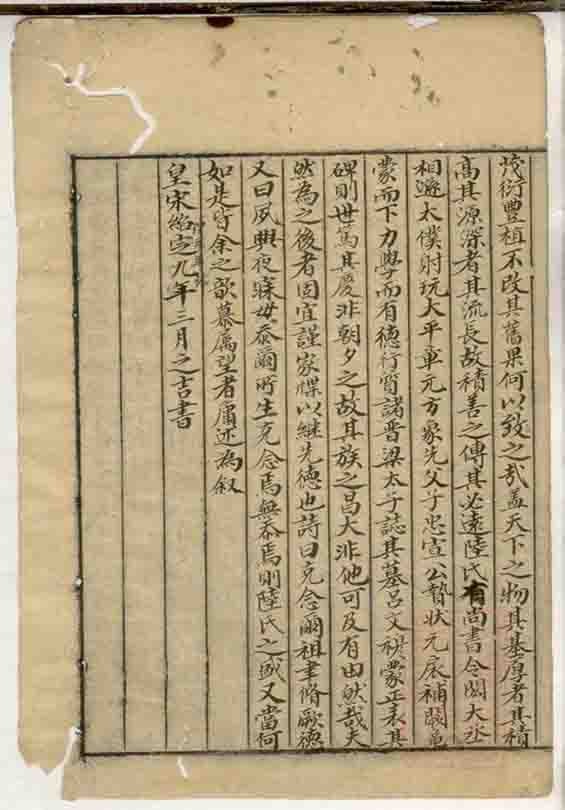 茂衍豐植不改其舊果何以致之哉盖天下之物其基厚者其積
高其源深者其流長故積善之傳其必遠陸氏有尚書令閎大丞
相遜太僕財玩大平車元方象先父子忠宣公贄狀元扆補闕龜
蒙而下力學而有德行嘗諸晉梁太子誌其墓呂文穆蒙正表其
碑則世篤其慶非朝夕之故其族之昌大非他可及有由然哉夫
然為之後者固宜謹家牒以継先德也詩曰克念爾祖聿脩厥德
又曰夙興夜寐毋忝爾所生克念焉無忝焉則陸氏之盛又當何
如是皆余之歆慕属望者庸述為叙
皇宋紹定九年三月之吉書